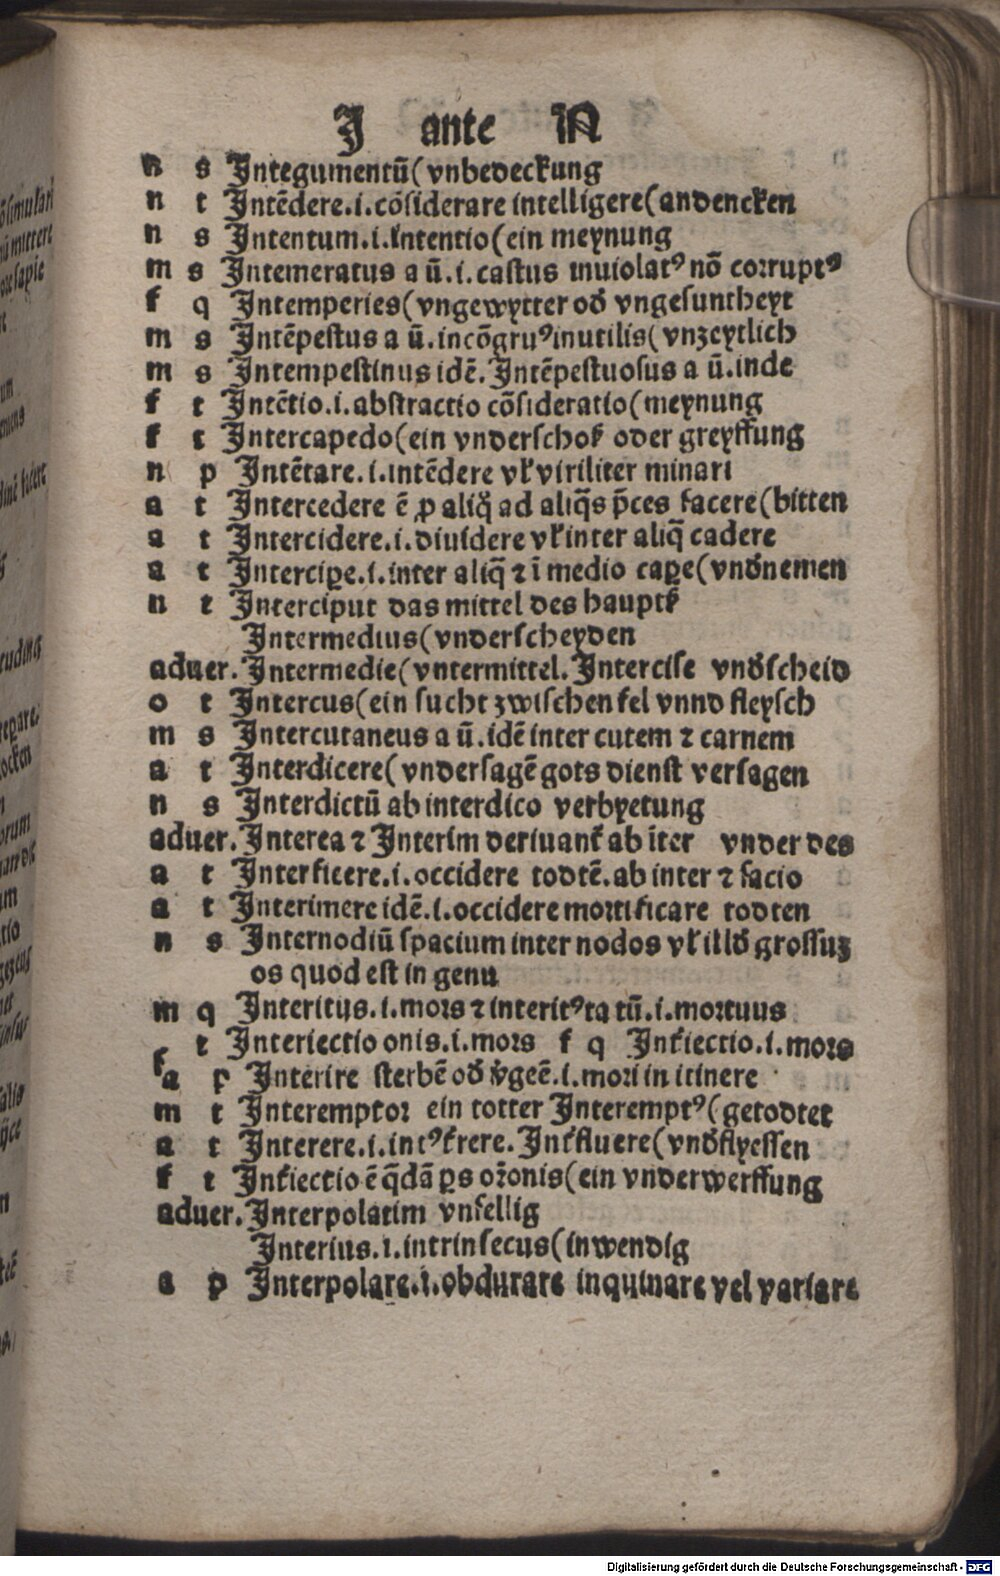 J ante iN
n s Integumentū( vnbedeckung
n t Intēdere.i.cōsiderare intelligere( andencken
n s Intentum.i.intentio( ein meynung
m s Intemeratus a ū.i.castus inuiolatꝰ nō corruptꝰ
f q Intemperies( vngewytter od' vngesuntheyt
m s Intēpestus a ū.incōgruꝰ inutilis( vnzeytlich
m s Intempestinus idē. Intēpestuosus a ū.inde
f t Intētio.i.abstractio cōsideratio( meynung
f t Intercapedo( ein vnderschok oder greyffung
n p Intētare.i.intēdere vł viriliter minari
a t Intercedere ē ꝓ aliq̄ ad aliq̄s p̄ces facere( bitten
a t Intercidere.i.diuidere vł inter aliq̄ cadere
a t Interciꝑe.i.inter aliq̄ ⁊ ī medio caꝑe( vnd'nemen
n t Interciput das mittel des haupts
Intermedius( vnderscheyden
aduer. Intermedie( vntermittel. Intercise vnd'scheid
o t Intercus( ein sucht zwischen fel vnnd fleysch
m s Intercutaneus a ū.idē inter cutem ⁊ carnem
a t Interdicere( vndersagē gots dienst versagen
n s Interdictū ab interdico verbyetung
aduer. Interea ⁊ Interim deriuant᷑ ab īter vnder des
a t Interficere.i.occidere todtē.ab inter ⁊ facio
a t Interimere idē.i.occidere mortificare todten
n s Internodiū spacium inter nodos vł illud' grossuꝫ
os quod est in genu
m q Interitus.i.mors ⁊ interitꝰ ta tū.i.mortuus
f t Interiectio onis.i.mors f q Int᷑iectio.i.mors
a p Interire sterbē od' v'geē.i.mori in itinere
m t Interemptor ein totter Interemptꝰ( getodtet
a t Interere.i.intꝰ t᷑rere. Int᷑fluere( vnd'flyessen
f t Int᷑iectio ē q̄dā ꝑs or̄onis( ein vnderwerffung
aduer. Interpolatim vnfellig
Interius.i.intrinsecus( inwendig
a p Interpolare.i.obdurare inquinare vel variare
Digitalisierung gefördert durch die Deutsche Forschungsgemeinschaft - DFG